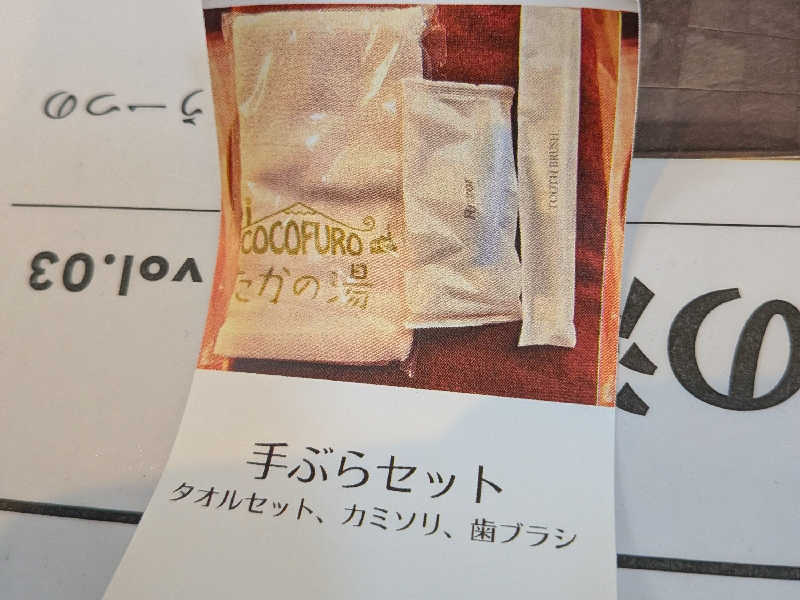 COCOFURO
たかの湯
Razor
TOOTH BRUSH
手ぶらセット
タオルセット、カミソリ、歯ブラシ
vol.03
の